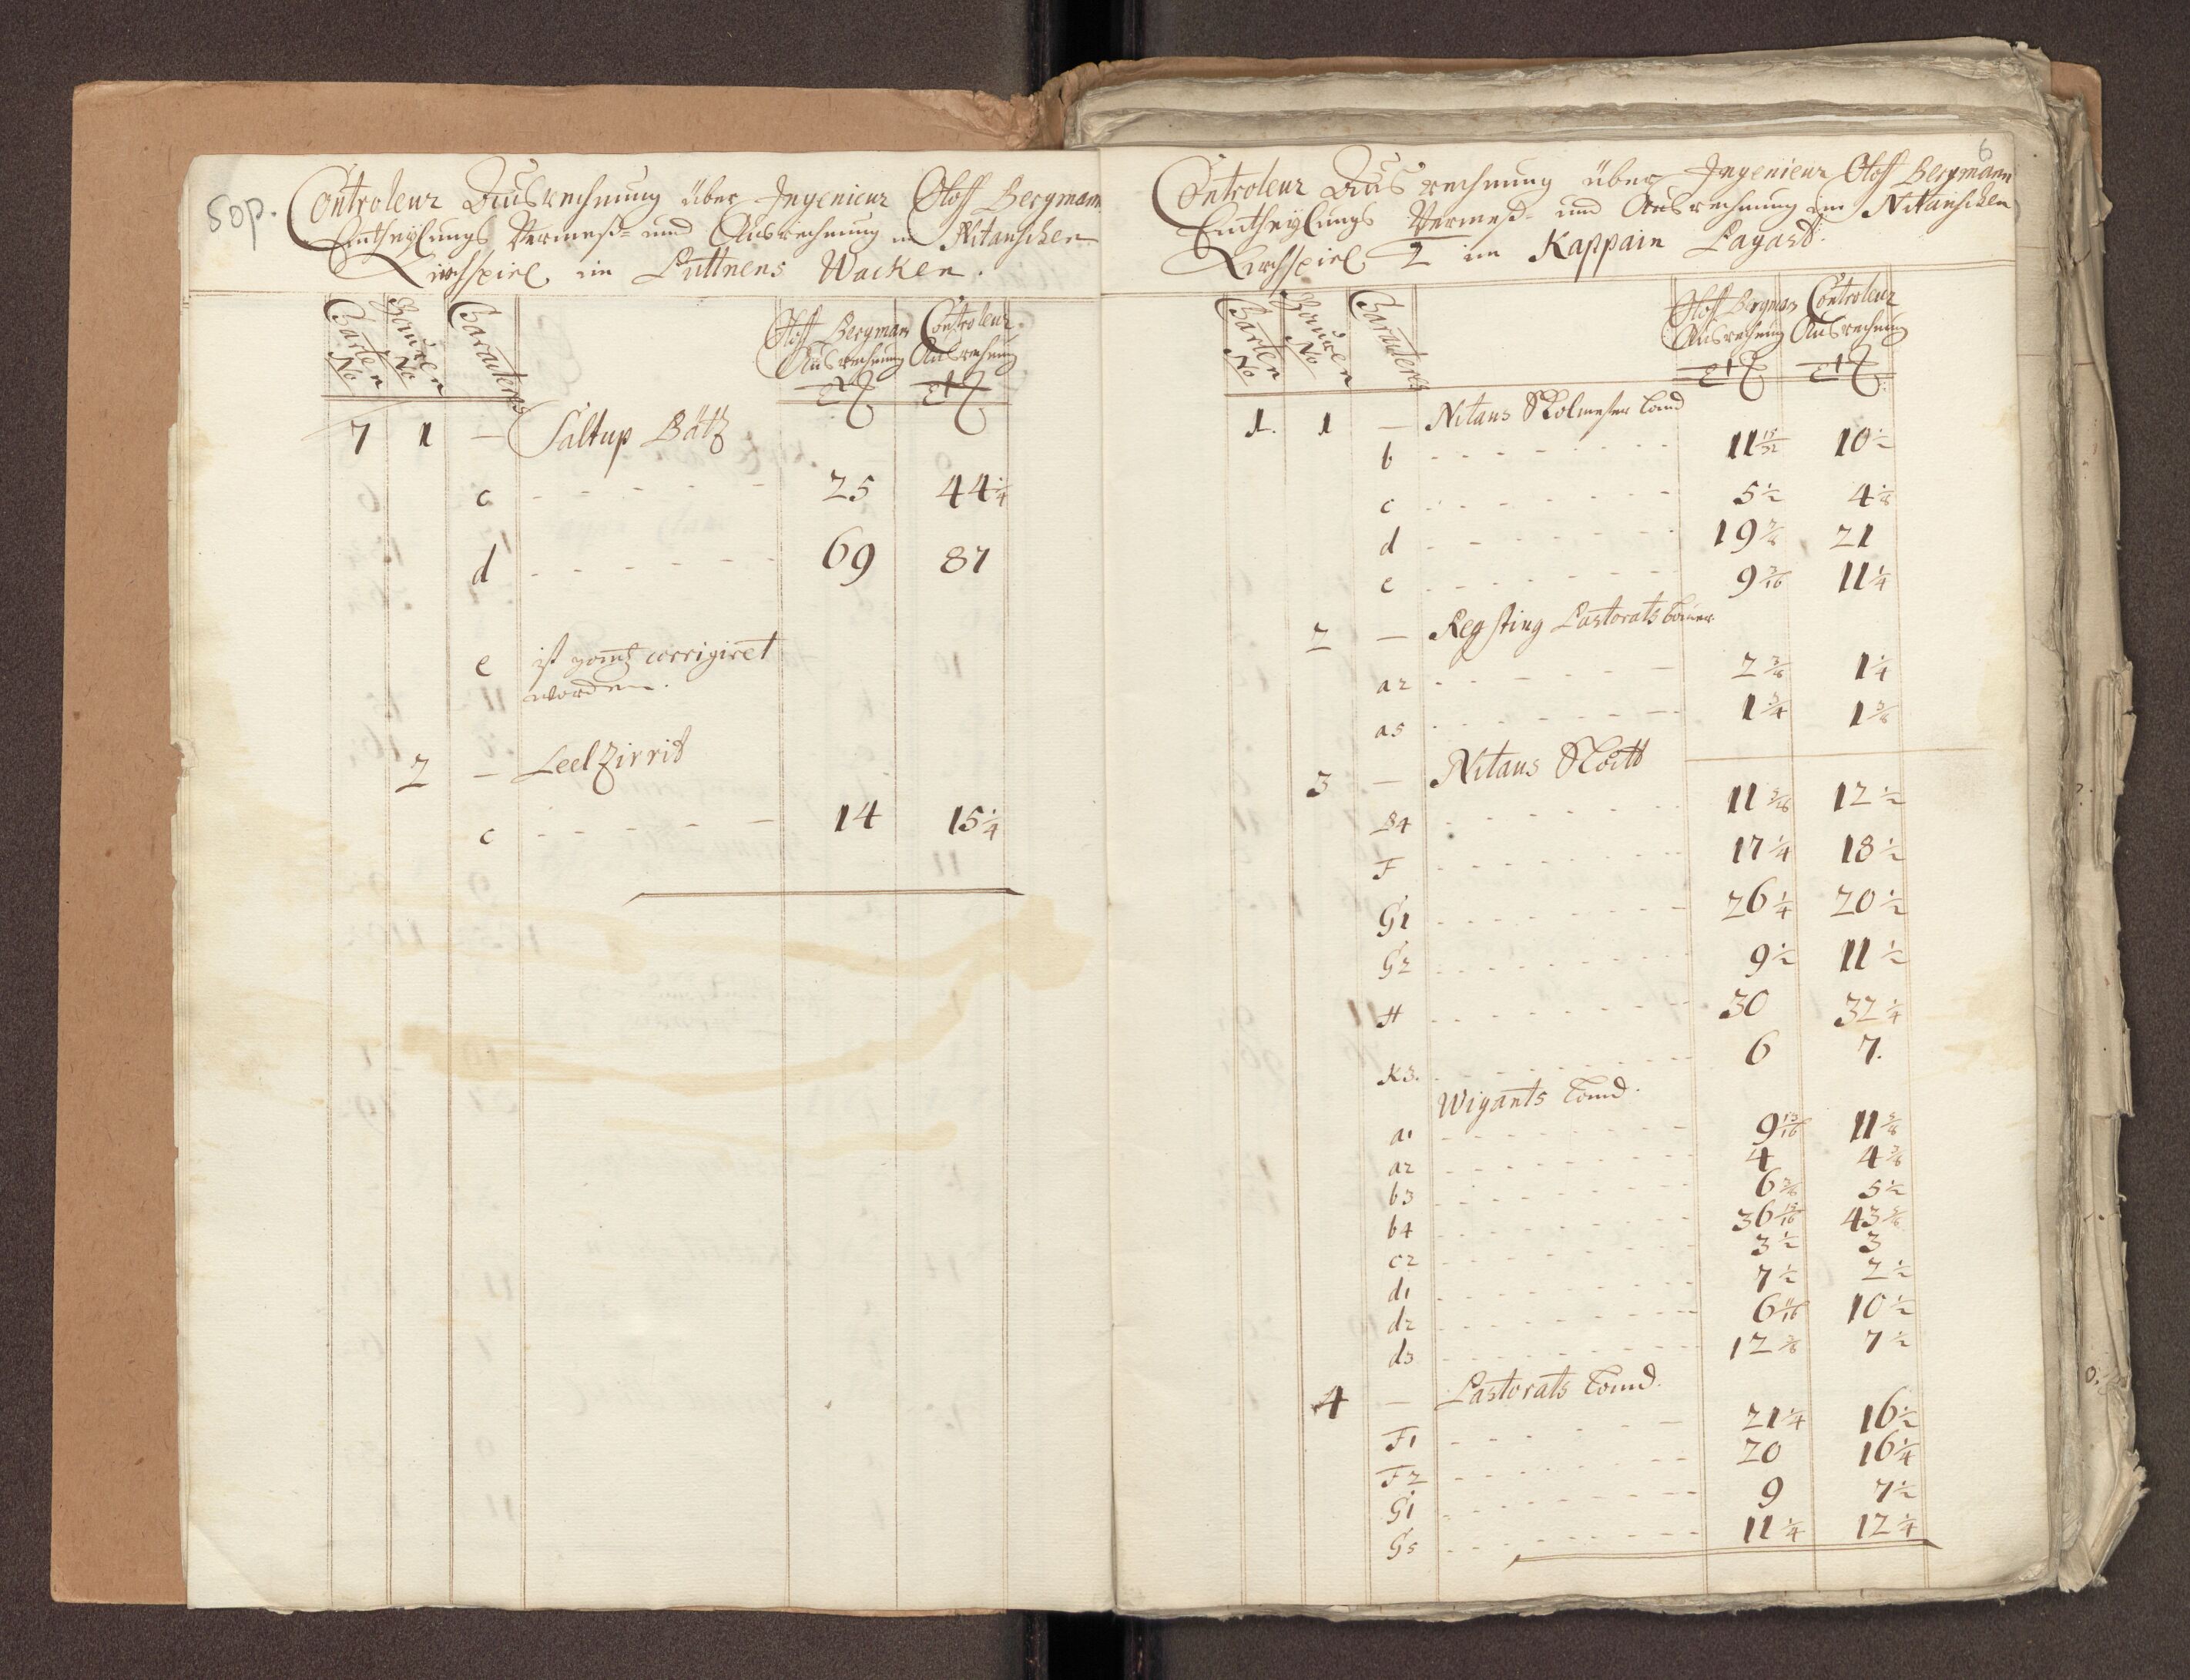 50p.
Controleur Ausrechnung über Ingenieur Oloff Bergman
Eintheylungs Vermeß- und Ausrechnung in Nitauschen
Kirchspiel im Puttnens Wacken.
Carten No
Bauren No
Caracteres
Oloff Bergman Ausrechnung
Controleur Ausrechnung
7 1 — Saltup Bätz
c - - - - - - 25 44 1/4
d - - - - - - 69 87
e ist gantz corrigiret
worden.
2 — Leel Zirrit
c - - - - - - 14 15 1/4
6
Controleur Ausrechnung über Ingenieur Oloff Bergmann
Eintheylungs Vermeß- und Ausrechnung im Nitauschen
Kirchspiel im Kappain Pagast.
Carten No
Bauren No
Caracteres
Oloff Bergman Ausrechnung
Controleur Ausrechnung
1. 1 — Nitaus Skolmester Land
b - - - - - - 11 15/32 10 1/2
c - - - - - - 5 1/2 4 1/8
d - - - - - - 19 21
e - - - - - - 9 3/16 11 1/4
2 — Regsting Pastorats bauer
a2 - - - - - - 2 3/8 1 1/4
a5 - - - - - - 1 3/4 1 3/8
3 — Nitaus
B4 - - - - - - 11 12 1/2
F - - - - - - 17 1/4 18 1/2
G1 - - - - - - 26 1/4 20 1/2
G2 - - - - - - 9 1/2 11 1/2
H - - - - - - 30 32 1/4
K3. - - - - - - 6 7.
Wigants Land.
a1 - - - - - - 9 13/16 11 5/8
a2 - - - - - - 4 4 3/8
b3 - - - - - - 6 5 1/2
b4 - - - - - - 36 43
c2 - - - - - - 3 1/2 3
d1 - - - - - - 7 1/2 2 1/2
d2 - - - - - - 6 11/16 10 1/2
d3 - - - - - - 12 7 1/2
4 — Pastorats Land.
F1 - - - - - - 21 1/4 16 1/2
F2 - - - - - - 20 16 1/4
G1 - - - - - - 9 7 1/2
G5 - - - - - - 11 1/4 12 1/4